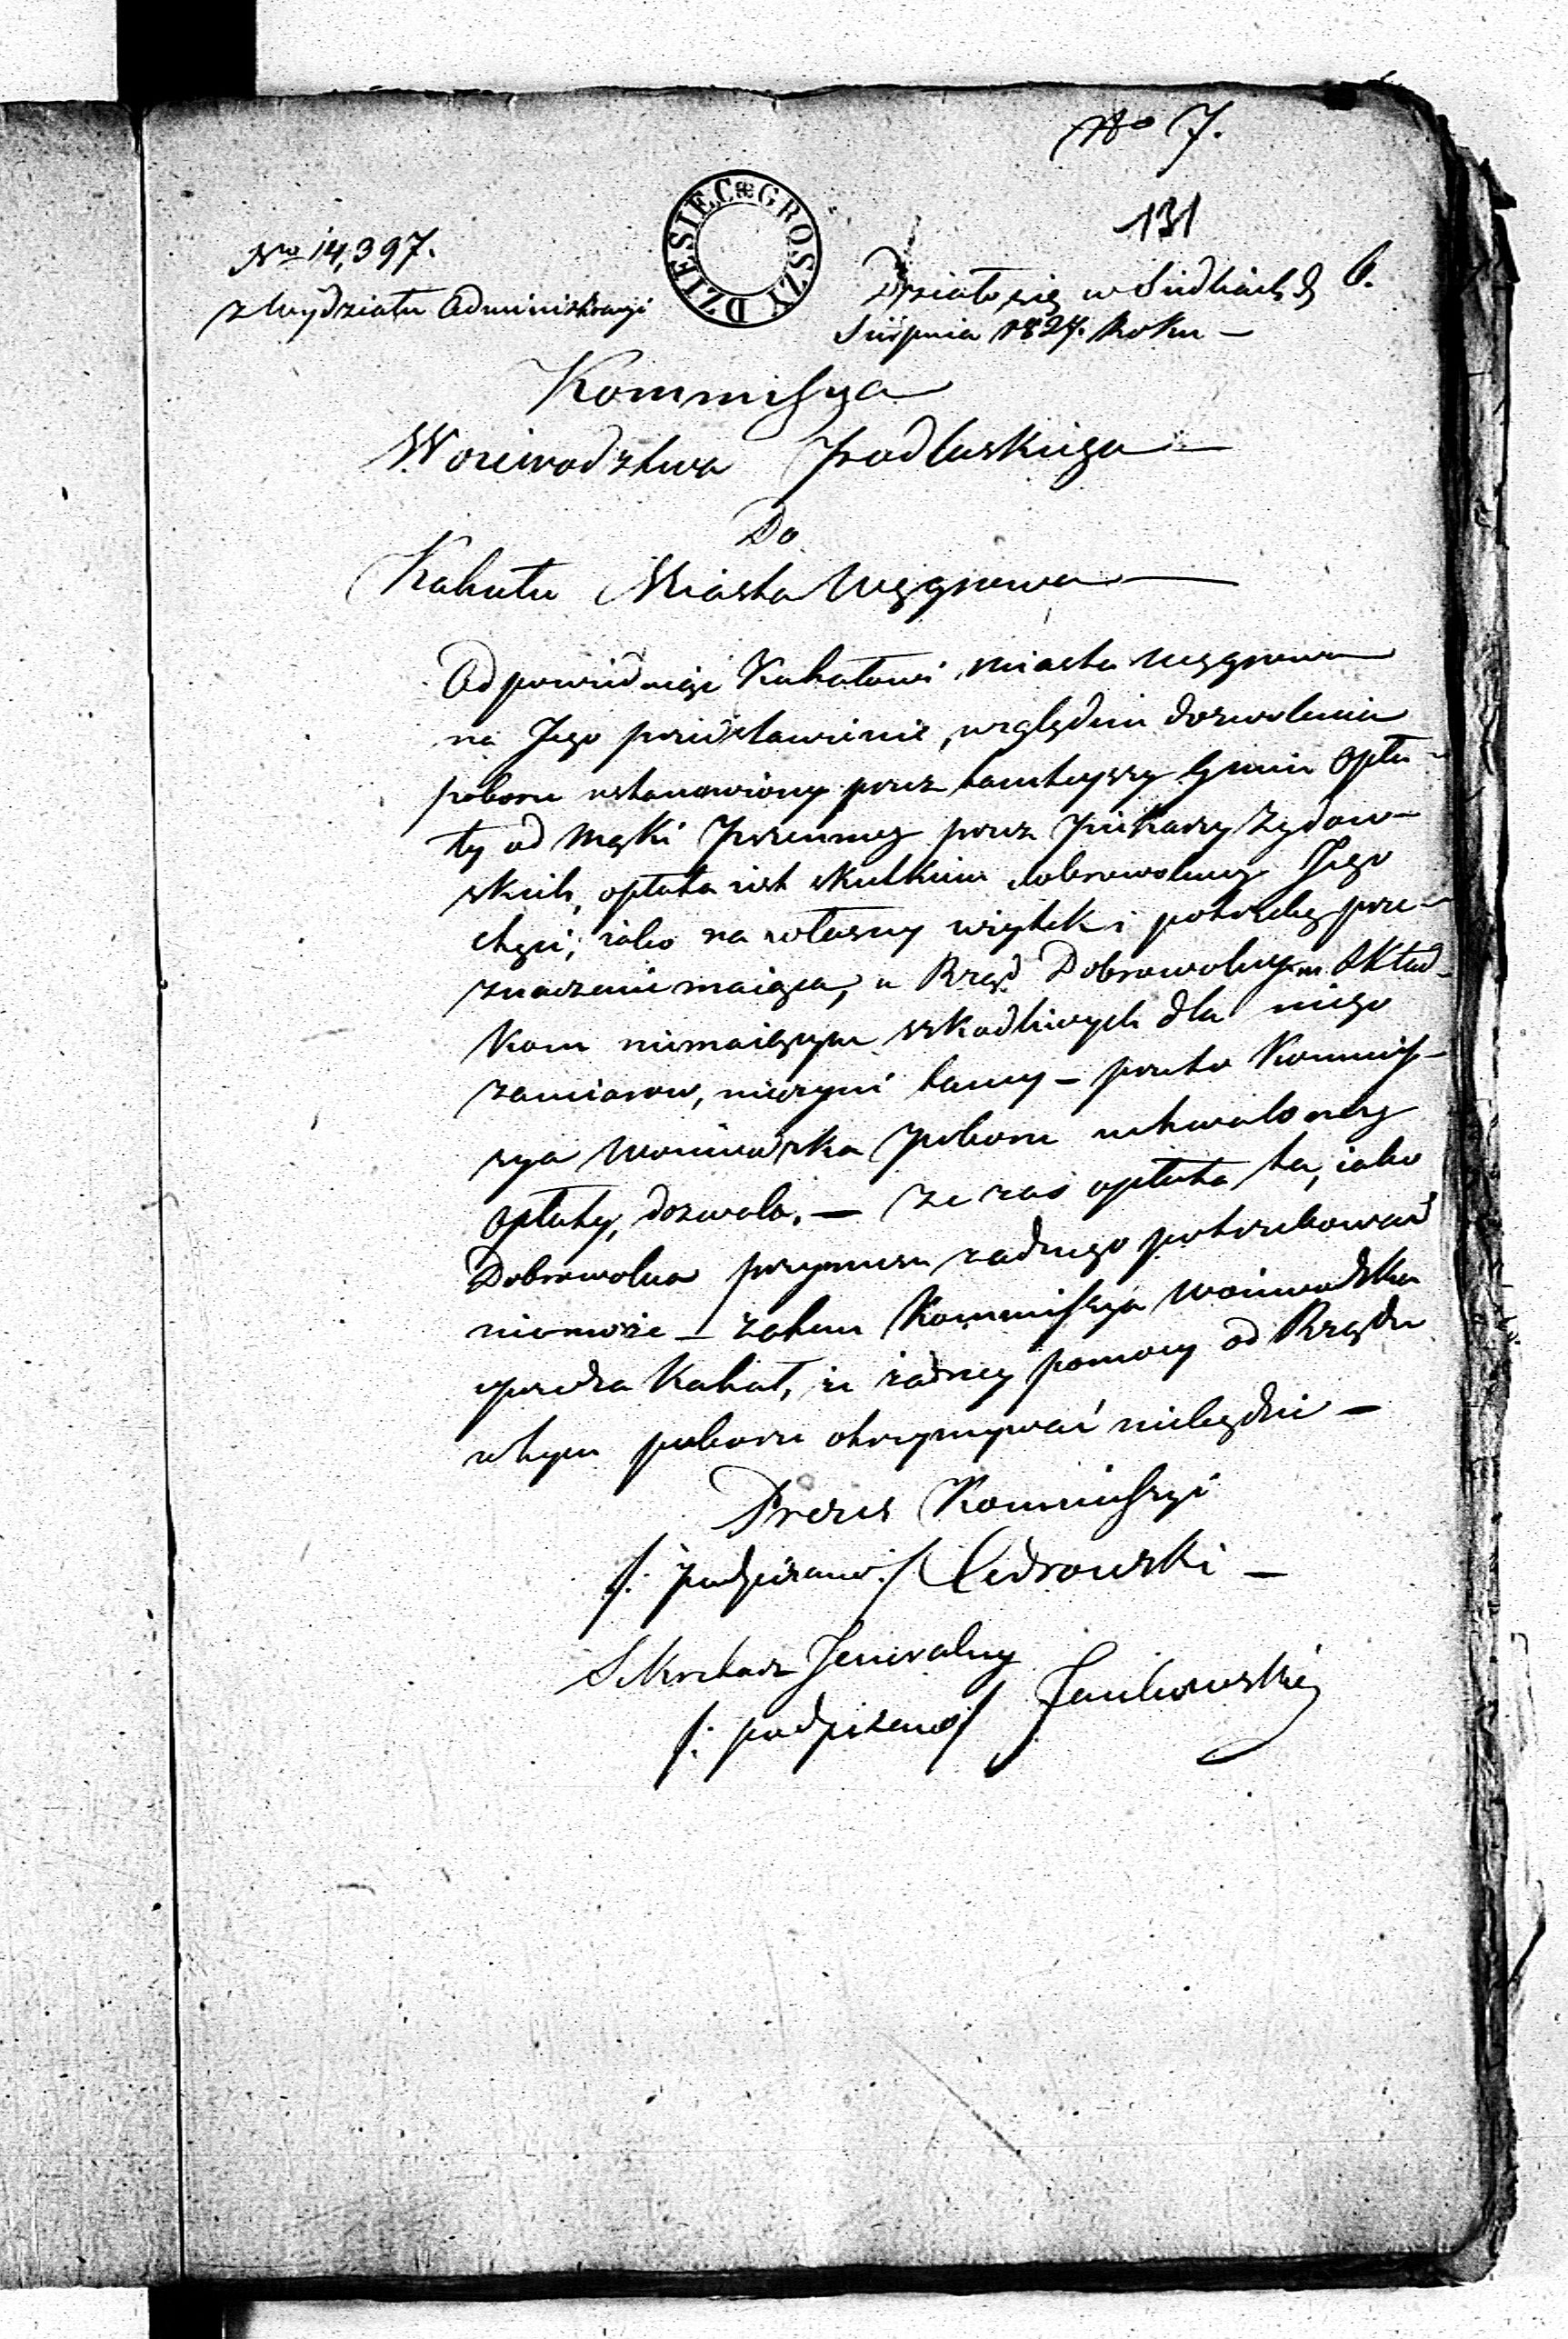 No 7.
131
Nro 14,397.
z Wydziału Administracyi
DZIESIEC GROSZY
Działo się w Siedlcach d. 6.
Sierpnia 1827. Roku —
Kommissya
Woiewodztwa Podlaskiego —
Do
Kahału Miasta Węgrowa —
Odpowiednięi Kahałowi Miasta Węgrowa
na Jego przedstawienie, względem dozwolenia
poboru ustanowioney przez tamteyszy Gmin Opła-
ty od Mąki Pszenney przez Piekarzy Żydow-
skich, opłata iest skutkiem dobrowolney Jego
chęci, iako na własny użytek i potrzebę prze-
znaczenie maiąca, a Rząd Dobrowolnym Skład-
kom niemaiącym szkodliwych dla niego
zamiarow, nieczyni tamy — przeto Kommis-
sya Woiewodzka Poboru uchwaloney
Opłaty, dozwala. — Ze zas opłata ta, iako
Dobrowolna przymusu żadnego potrzebować
niemoże — zatem Kommissya Woiewodzka
uprzedza Kahał, że żadney pomocy od Rządu
w tym poborze otrzymywać niebędzie —
Prezes Kommissyi
/: podpisano :/ Cedrowski —
Sekretarz Jeneralny
/: podpisano :/ Jankowski